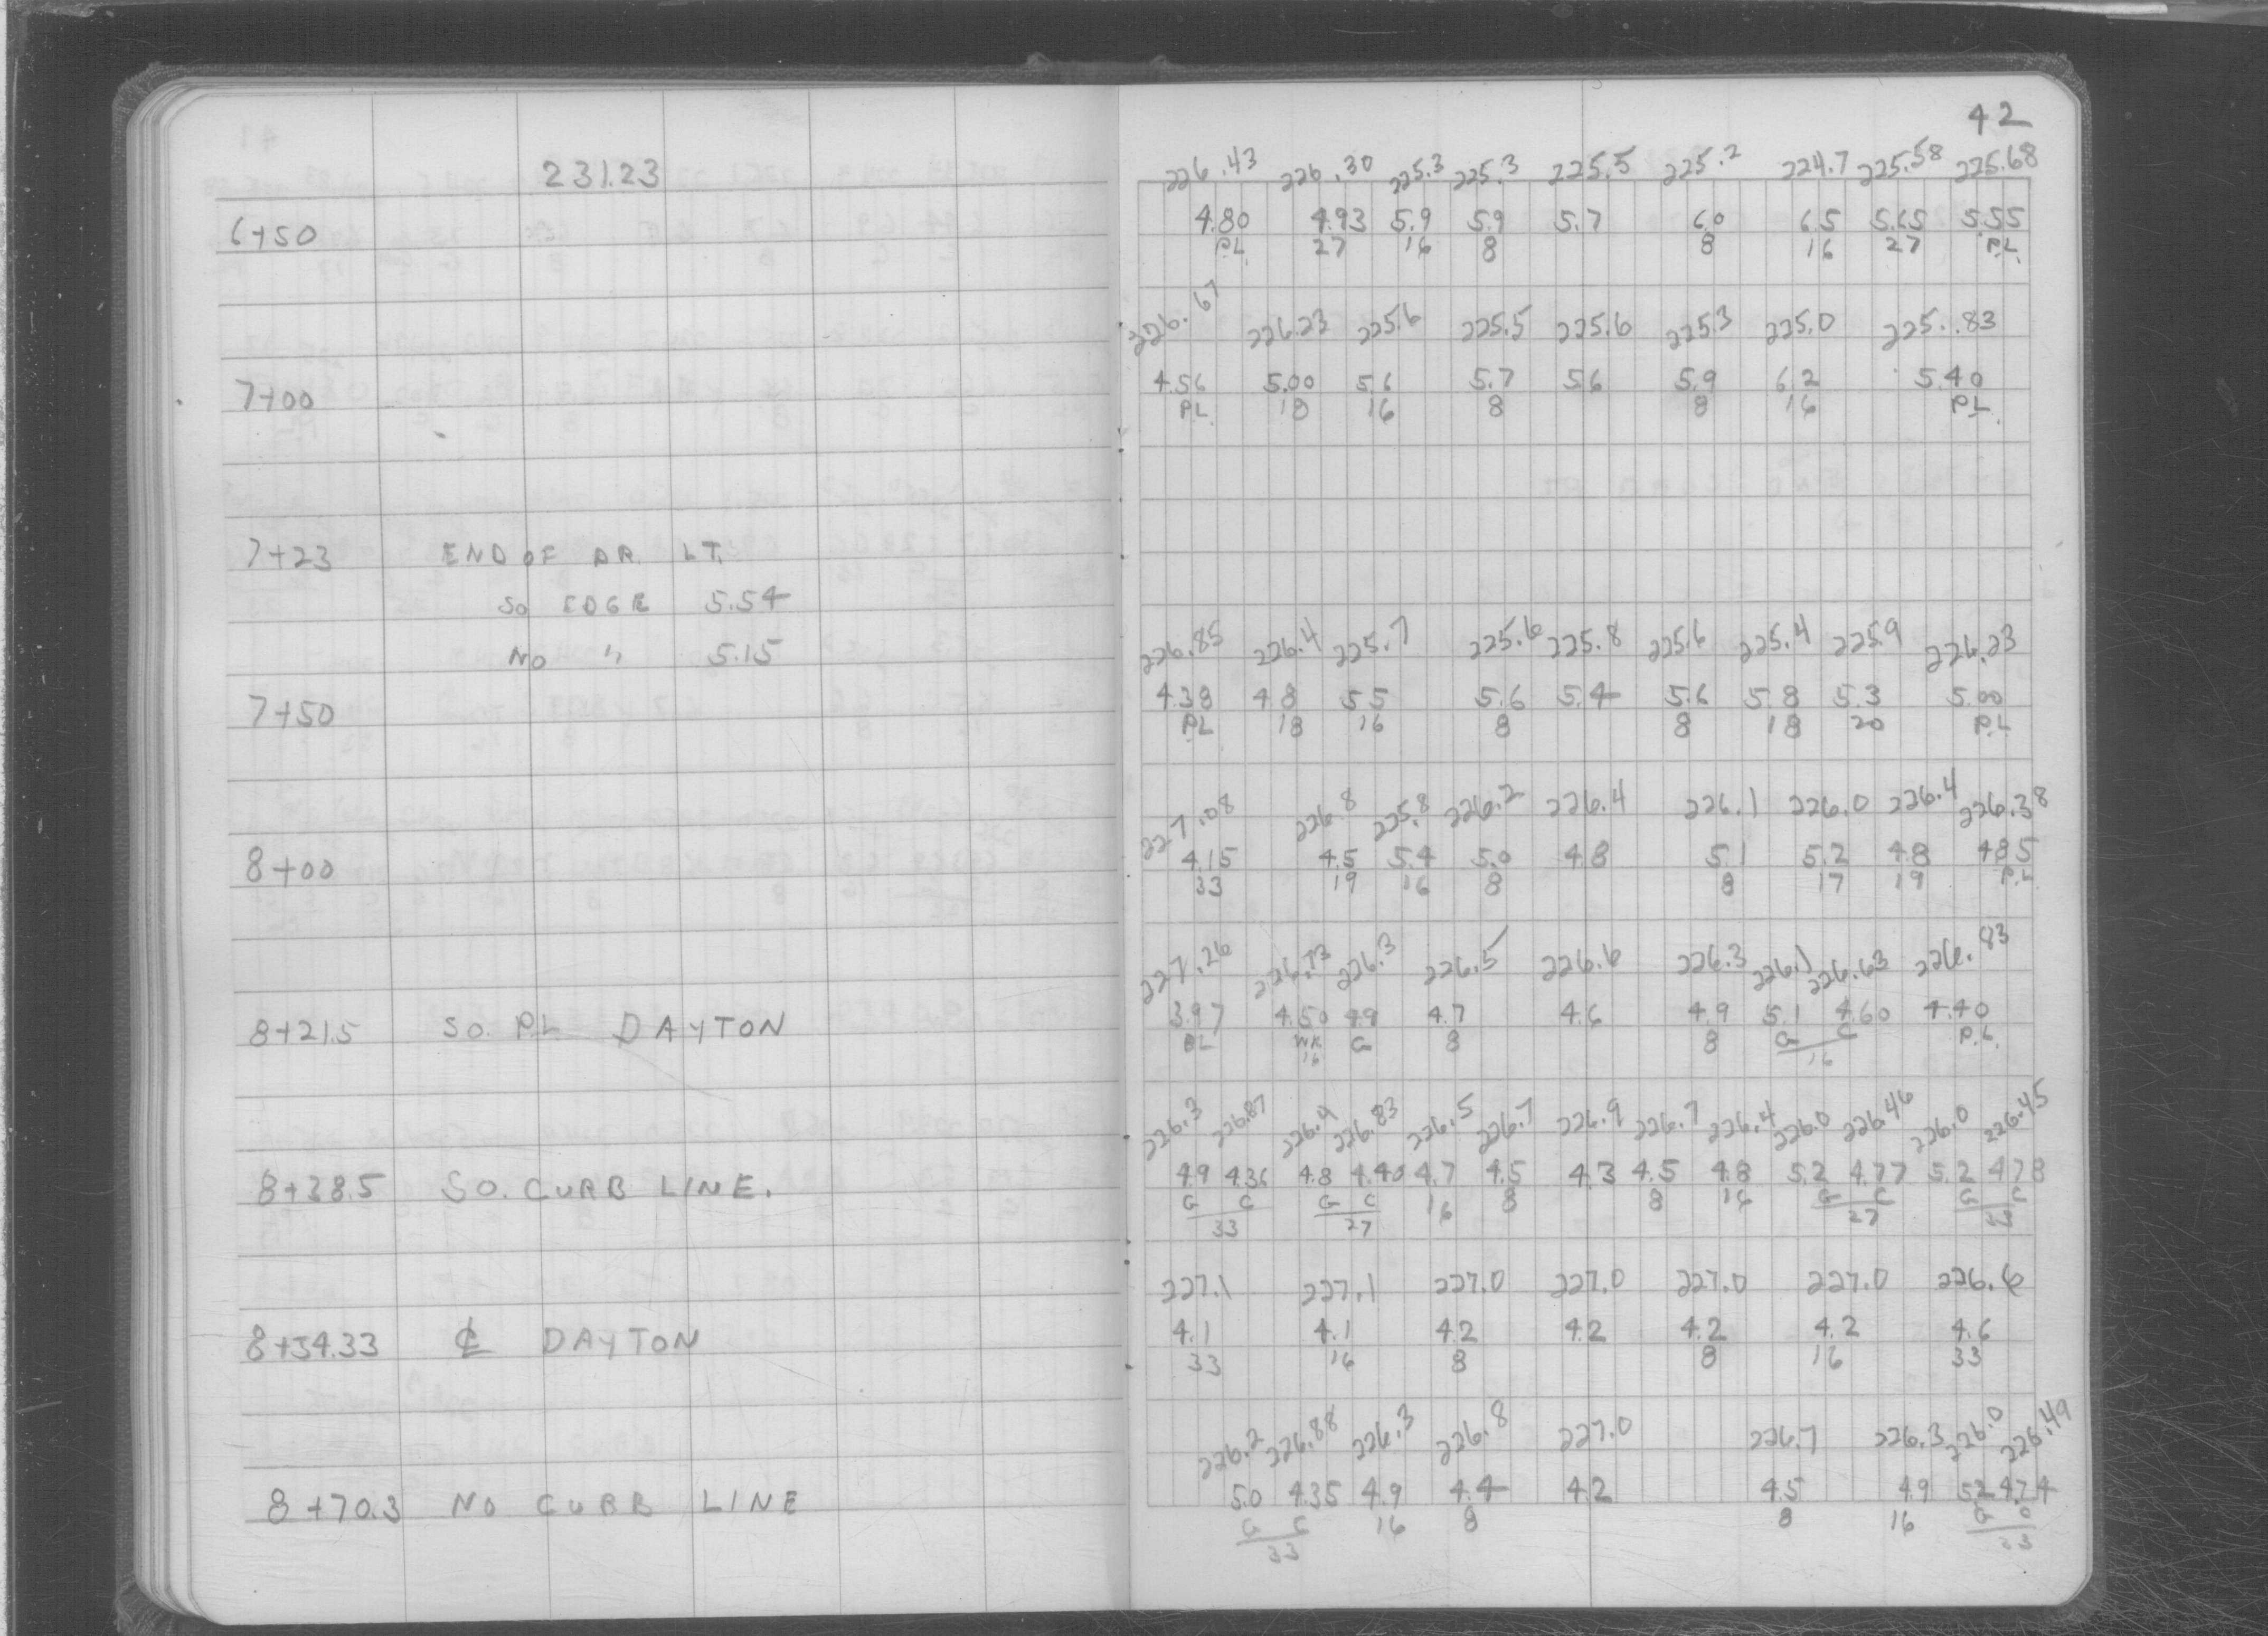 42
231.23
226.43 226.30 225.3 225.3 225.5 225.2 224.7 225.58 225.68
6+50 4.80 4.93 5.9 5.9 5.7 6.0 6.5 5.65 5.55
P.L. 27 16 8 8 16 27 P.L.
226.67 226.23 225.6 225.5 225.6 225.3 225.0 225.83
7+00 4.56 5.00 5.6 5.7 5.6 5.9 6.2 5.40
P.L. 18 16 8 8 16 P.L.
7+23 END OF DR. LT.
SO EDGE 5.54
NO " 5.15
226.85 226.4 225.7 225.6 225.8 225.6 225.4 225.9 226.23
7+50 4.38 4.8 5.5 5.6 5.4 5.6 5.8 5.3 5.00
P.L 18 16 8 8 18 20 P.L
227.08 226.8 225.8 226.2 226.4 226.1 226.0 226.4 226.38
8+00 4.15 4.5 5.4 5.0 4.8 5.1 5.2 4.8 4.85
33 19 16 8 8 17 19 P.L
227.26 226.73 226.3 226.5 226.6 226.3 226.1 226.63 226.83
8+21.5 SO. P.L DAYTON 3.97 4.50 4.9 4.7 4.6 4.9 5.1 4.60 4.40
P.L WK G 8 8 G C P.L.
16 16
226.3 226.87 226.4 226.83 226.5 226.7 226.9 226.7 226.4 226.0 226.46 226.0 226.45
8+38.5 SO. CURB LINE. 4.9 4.36 4.8 4.40 4.7 4.5 4.3 4.5 4.8 5.2 4.77 5.2 4.78
G C G C 16 8 8 16 G C G C
33 27 27 33
227.1 227.1 227.0 227.0 227.0 227.0 226.6
8+54.33 ℄ DAYTON 4.1 4.1 4.2 4.2 4.2 4.2 4.6
33 16 8 8 16 33
226.2 226.88 226.3 226.8 227.0 226.7 226.3 226.0 226.49
8+70.3 NO CURB LINE 5.0 4.35 4.9 4.4 4.2 4.5 4.9 5.2 4.74
G C 16 8 8 16 G C
33 33